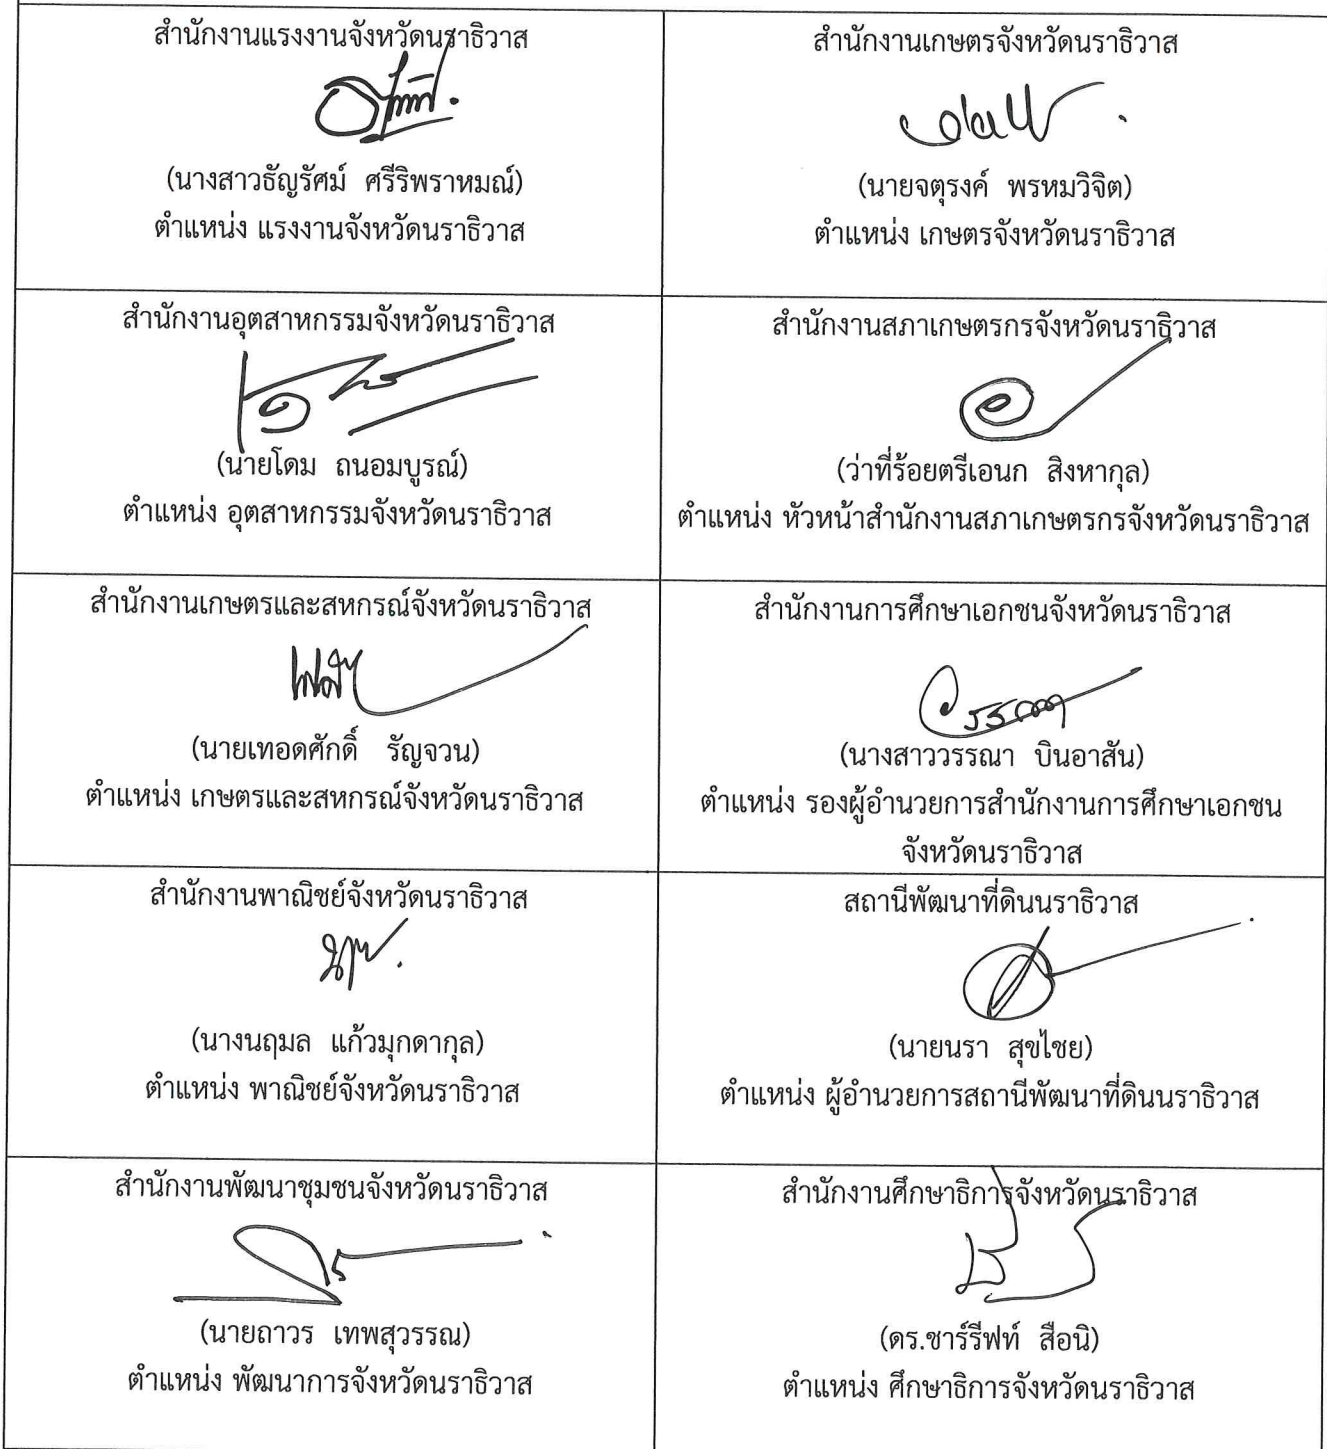 สำนักงานแรงงานจังหวัดนราธิวาส
(นางสาวธัญรัศม์ ศรีริพราหมณ์)
ตำแหน่ง แรงงานจังหวัดนราธิวาส
สำนักงานเกษตรจังหวัดนราธิวาส
(นายจตุรงค์ พรหมวิจิต)
ตำแหน่ง เกษตรจังหวัดนราธิวาส
สำนักงานอุตสาหกรรมจังหวัดนราธิวาส
(นายโดม ถนอมบูรณ์)
ตำแหน่ง อุตสาหกรรมจังหวัดนราธิวาส
สำนักงานสภาเกษตรกรจังหวัดนราธิวาส
(ว่าที่ร้อยตรีเอนก สิงหากุล)
ตำแหน่ง หัวหน้าสำนักงานสภาเกษตรกรจังหวัดนราธิวาส
สำนักงานเกษตรและสหกรณ์จังหวัดนราธิวาส
(นายเทอดศักดิ์ รัญจวน)
ตำแหน่ง เกษตรและสหกรณ์จังหวัดนราธิวาส
สำนักงานการศึกษาเอกชนจังหวัดนราธิวาส
(นางสาววรรณา บินอาสัน)
ตำแหน่ง รองผู้อำนวยการสำนักงานการศึกษาเอกชน
จังหวัดนราธิวาส
สำนักงานพาณิชย์จังหวัดนราธิวาส
(นางนฤมล แก้วมุกดากุล)
ตำแหน่ง พาณิชย์จังหวัดนราธิวาส
สถานีพัฒนาที่ดินนราธิวาส
(นายนรา สุขไชย)
ตำแหน่ง ผู้อำนวยการสถานีพัฒนาที่ดินนราธิวาส
สำนักงานพัฒนาชุมชนจังหวัดนราธิวาส
(นายถาวร เทพสุวรรณ)
ตำแหน่ง พัฒนาการจังหวัดนราธิวาส
สำนักงานศึกษาธิการจังหวัดนราธิวาส
(ดร.ชาร์รีฟท์ สือนิ)
ตำแหน่ง ศึกษาธิการจังหวัดนราธิวาส